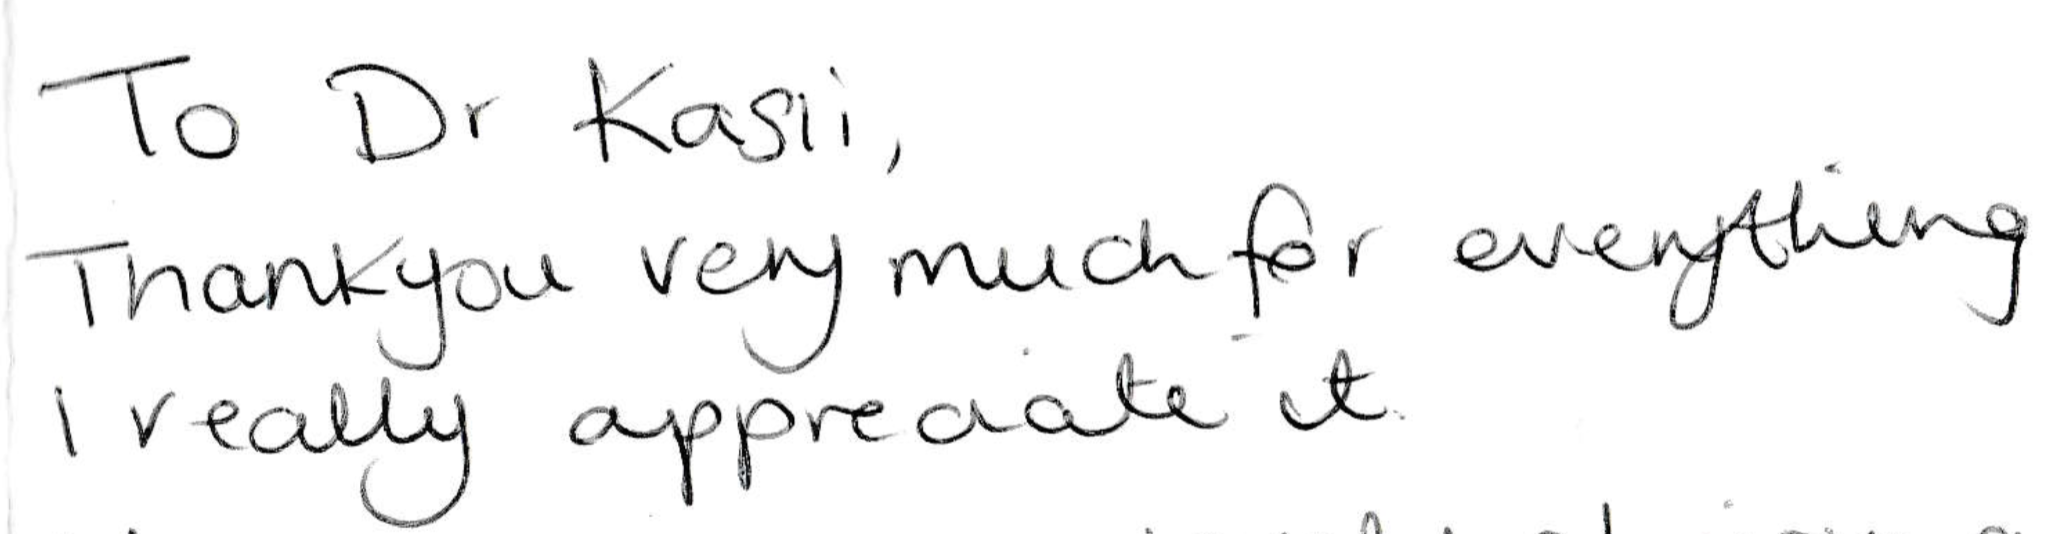 To Dr Kasli,
Thankyou very much for everything
I really appreciate it.